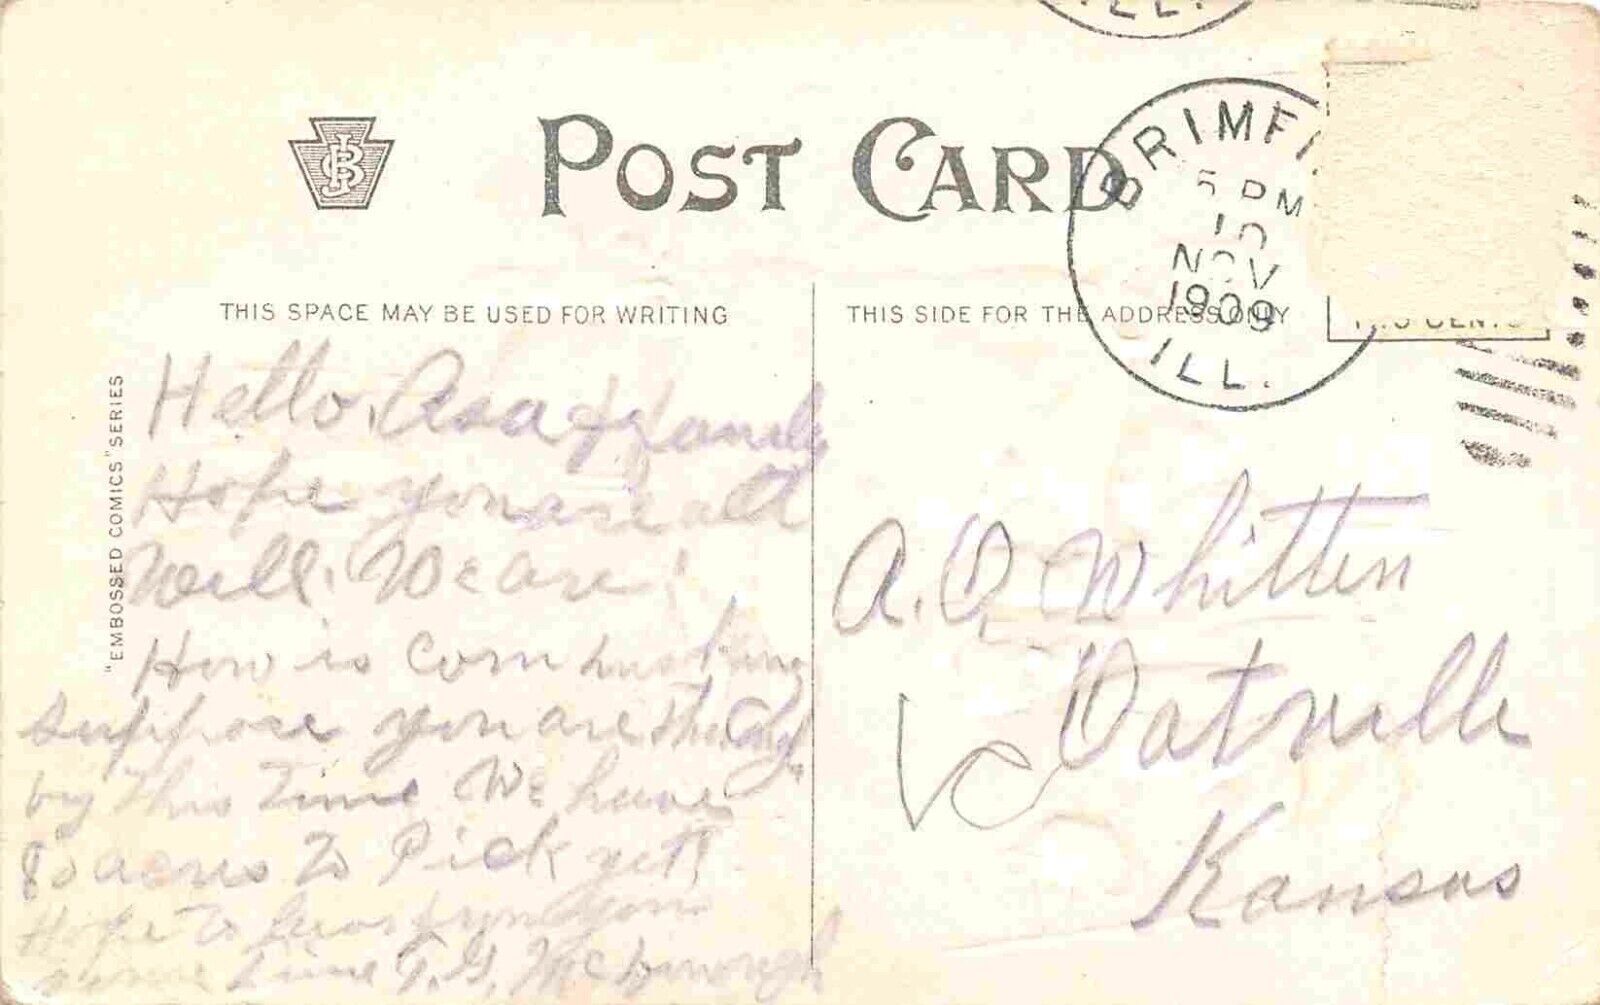 ILL.
POST CARD
BRIMFI
5 PM
10
NOV
1909
ILL.
JBS
THIS SPACE MAY BE USED FOR WRITING
THIS SIDE FOR THE ADDRESS ONLY
"EMBOSSED COMICS" SERIES
Hello, Asa & Family
Hope you are all
Well. We are.
How is Corn husking
suppose you are
by this Time We have
80 acres To Pick yett
Hope To hear from you
some Time T. G. McDonough
A. O. Whitten
Oatville
Kansas